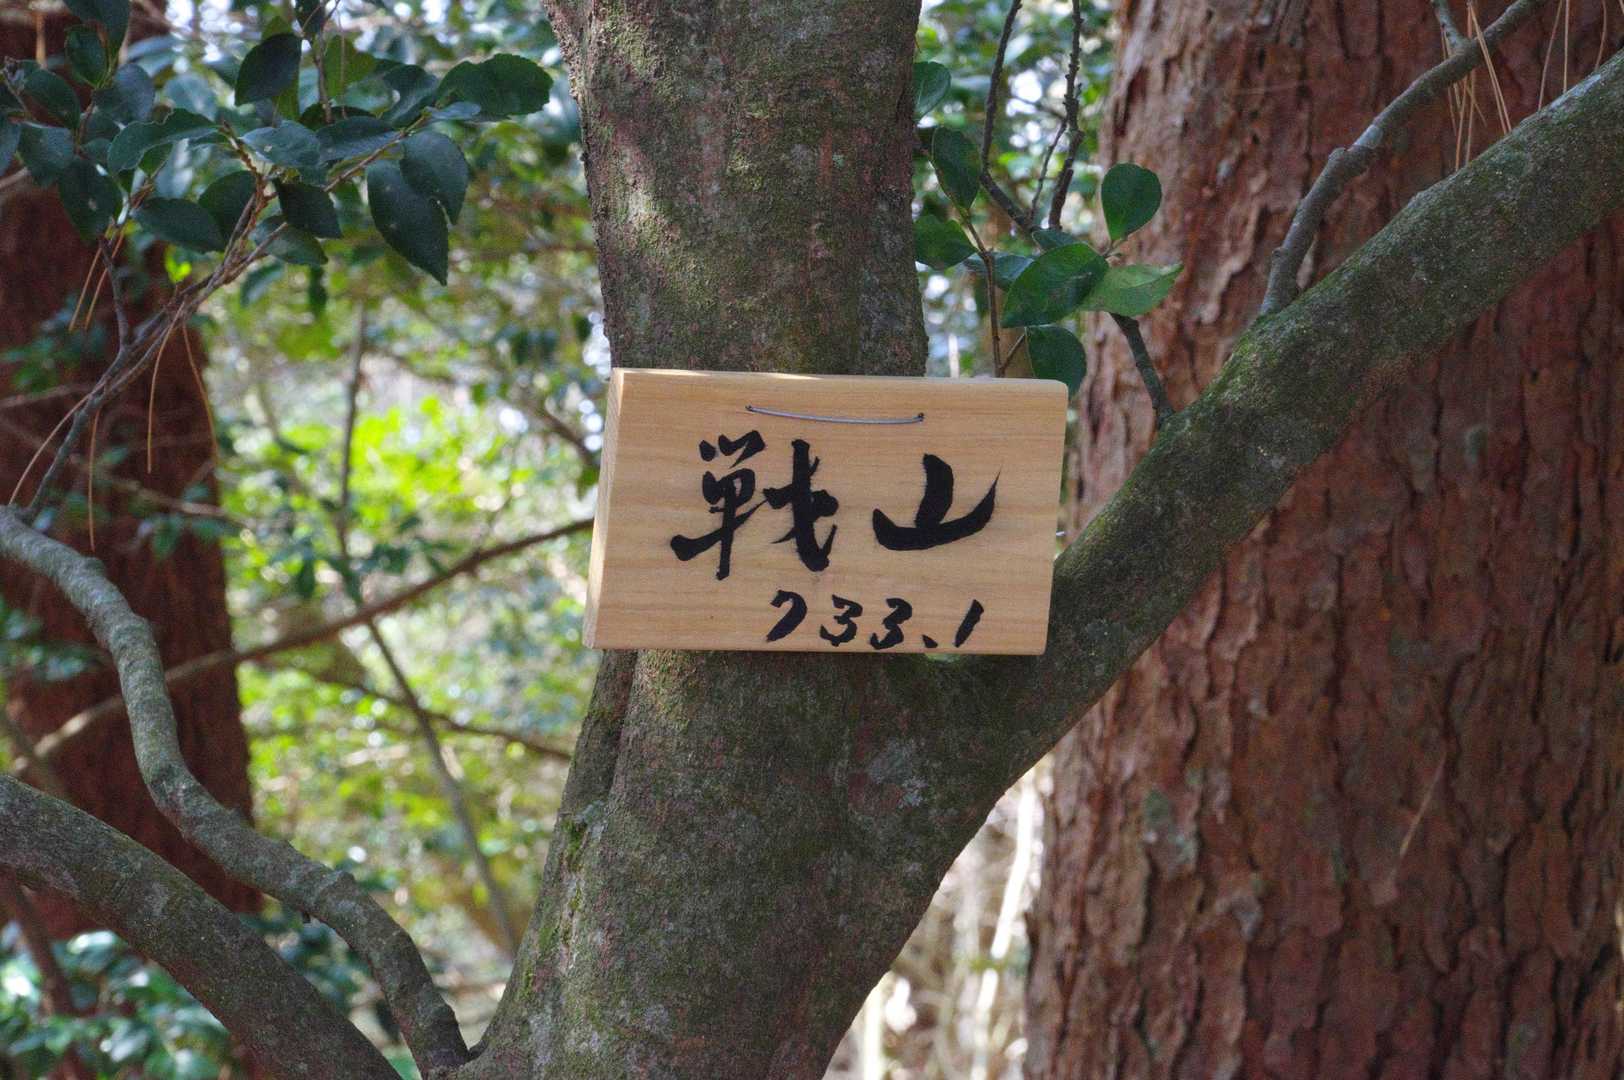 戦山
733.1